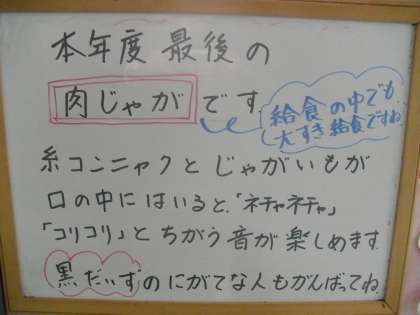 本年度 最後の
肉じゃが です
給食の中でも
大すき給食ですね
糸コンニャクとじゃがいもが
口の中にはいると、「ネチャネチャ」
「コリコリ」とちがう音が楽しめます
黒だいずのにがてな人もがんばってね